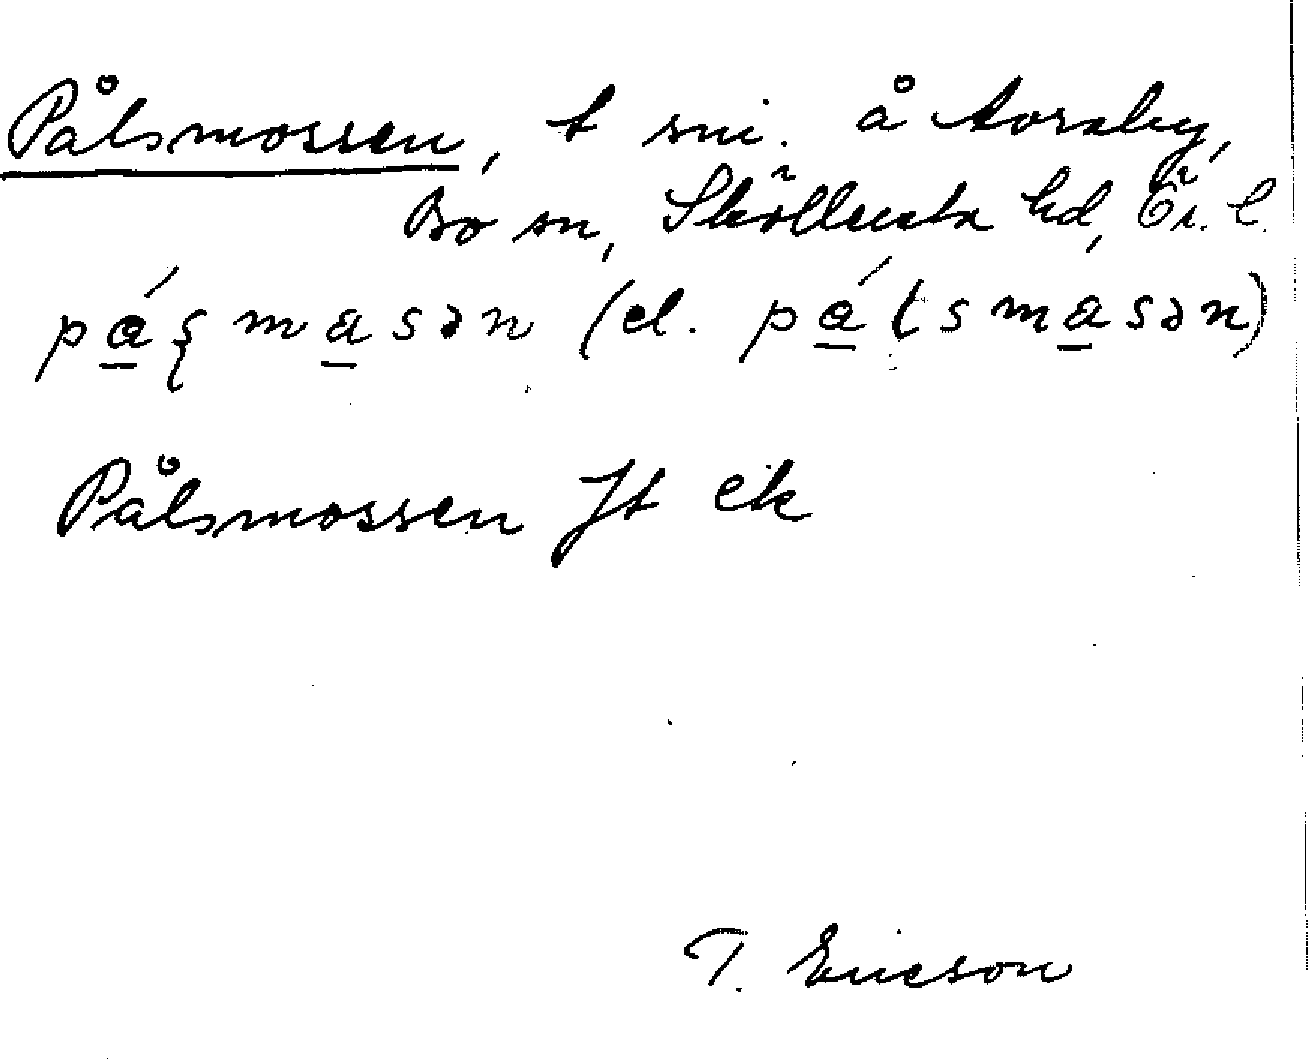 Pålsmossen, t sni. å Torsby,
Bo sn, Sköllersta hd, Ör. l.
pá̱ʂma̱sən (el. pá̱ɭsma̱sən)
Pålsmossen Jt ek
T. Ericson